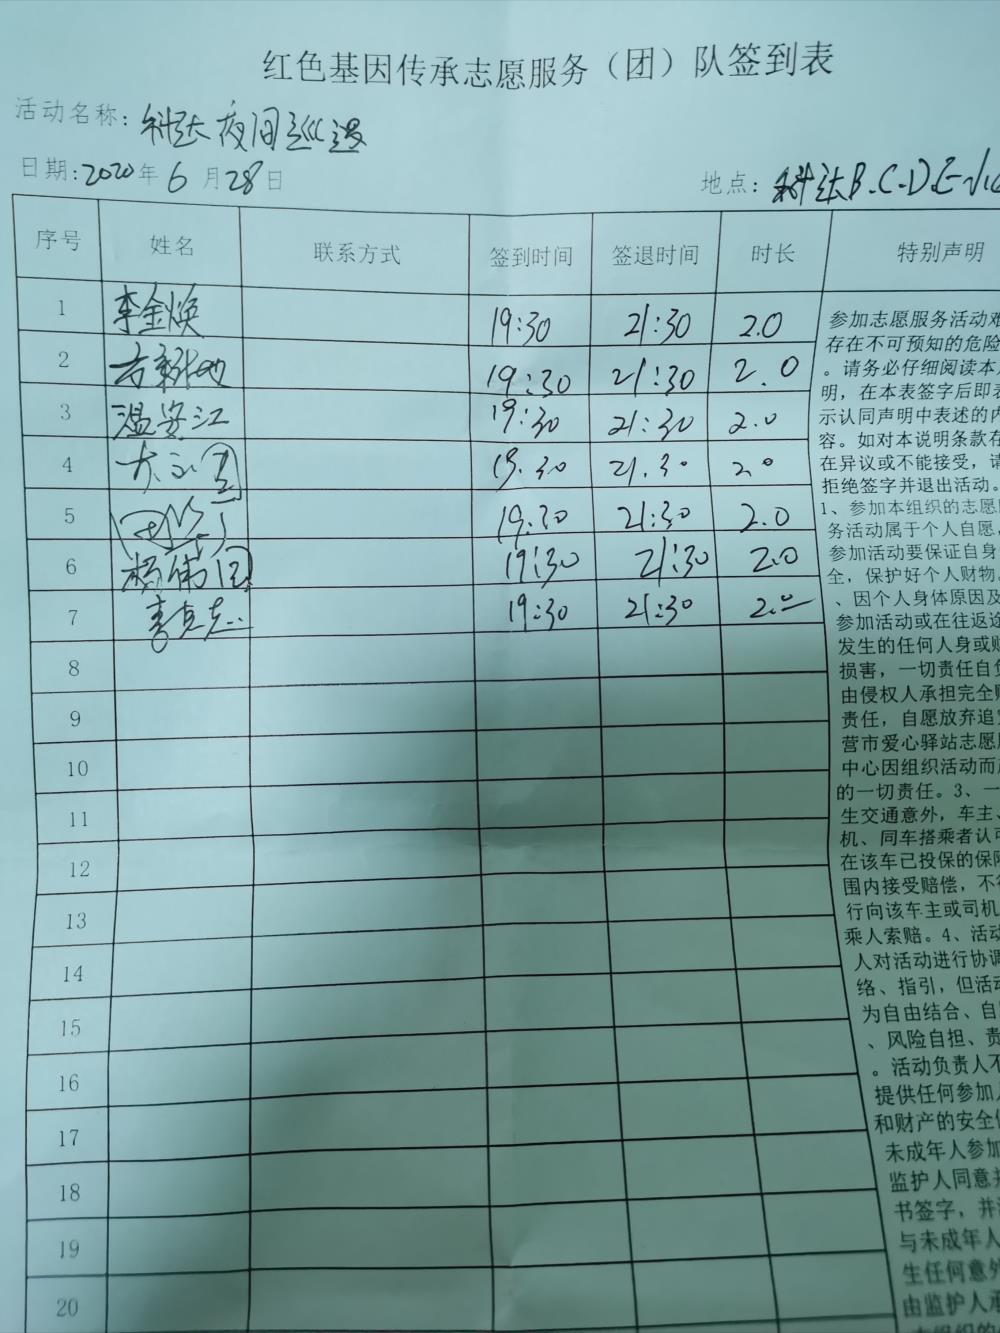 红色基因传承志愿服务（团）队签到表
活动名称：科达夜间巡逻
日期：2020年6月28日 地点：科达B.C.D.E
序号 姓名 联系方式 签到时间 签退时间 时长 特别声明
1 李金焕 19:30 21:30 2.0
2 19:30 21:30 2.0
3 温安江 19:30 21:30 2.0
4 19.30 21.30 2.0
5 19:30 21:30 2.0
6 杨伟国 19:30 21:30 2.0
7 19:30 21:30 2.0
8
9
10
11
12
13
14
15
16
17
18
19
20
参加志愿服务活动难
存在不可预知的危险
。请务必仔细阅读本
明，在本表签字后即表
示认同声明中表述的内
容。如对本说明条款存
在异议或不能接受，请
拒绝签字并退出活动。
1、参加本组织的志愿
务活动属于个人自愿，
参加活动要保证自身
全，保护好个人财物。
、因个人身体原因及
参加活动或在往返途
发生的任何人身或财
损害，一切责任自负
由侵权人承担完全赔
责任，自愿放弃追
营市爱心驿站志愿
中心因组织活动而
的一切责任。3、一
生交通意外，车主、
机、同车搭乘者认可
在该车已投保的保险
围内接受赔偿，不得
行向该车主或司机
乘人索赔。4、活动
人对活动进行协调
络、指引，但活动
为自由结合、自
、风险自担、责
。活动负责人不
提供任何参加人
和财产的安全
未成年人参加
监护人同意并
书签字，并
与未成年人
生任何意外
由监护人承